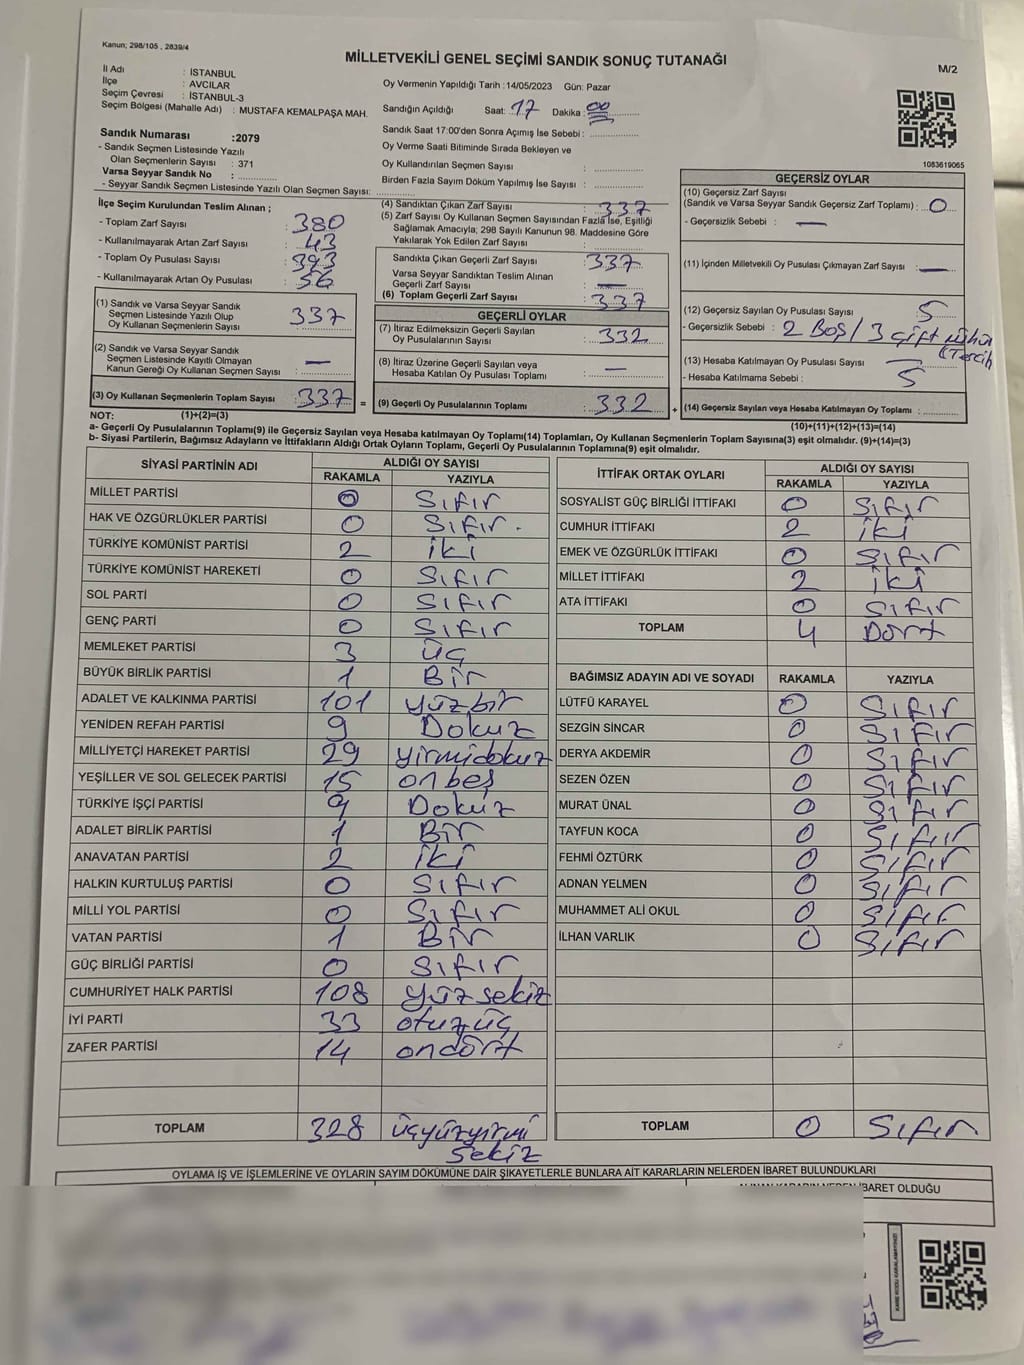 Kanun; 298/105 , 2839/4
MİLLETVEKİLİ GENEL SEÇİMİ SANDIK SONUÇ TUTANAĞI
M/2
İl Adı : İSTANBUL
İlçe : AVCILAR
Seçim Çevresi : İSTANBUL-3
Seçim Bölgesi (Mahalle Adı) : MUSTAFA KEMALPAŞA MAH.
Sandık Numarası :2079
- Sandık Seçmen Listesinde Yazılı
Olan Seçmenlerin Sayısı : 371
Varsa Seyyar Sandık No :
- Seyyar Sandık Listesinde Yazılı Olan Seçmen Sayısı:
Oy Vermenin Yapıldığı Tarih :14/05/2023 Gün: Pazar
Sandığın Açıldığı Saat: 17 Dakika: 00
Sandık Saat 17:00'den Sonra Açımış İse Sebebi :
Oy Verme Saati Bitiminde Sırada Bekleyen ve
Oy Kullandırılan Seçmen Sayısı :
Birden Fazla Sayım Döküm Yapılmış İse Sayısı :
1083619065
İlçe Seçim Kurulundan Teslim Alınan ;
- Toplam Zarf Sayısı : 380
- Kullanılmayarak Artan Zarf Sayısı : 43
- Toplam Oy Pusulası Sayısı : 393
- Kullanılmayarak Artan Oy Pusulası : 56
(1) Sandık ve Varsa Seyyar Sandık
Seçmen Listesinde Yazılı Olup
Oy Kullanan Seçmenlerin Sayısı : 337
(2) Sandık ve Varsa Seyyar Sandık
Seçmen Listesinde Kayıtlı Olmayan
Kanun Gereği Oy Kullanan Seçmen Sayısı : —
(3) Oy Kullanan Seçmenlerin Toplam Sayısı : 337 =
(4) Sandıktan Çıkan Zarf Sayısı : 337
(5) Zarf Sayısı Oy Kullanan Seçmen Sayısından Fazla İse, Eşitliği
Sağlamak Amacıyla; 298 Sayılı Kanunun 98. Maddesine Göre
Yakılarak Yok Edilen Zarf Sayısı :
Sandıkta Çıkan Geçerli Zarf Sayısı : 337
Varsa Seyyar Sandıktan Teslim Alınan
Geçerli Zarf Sayısı : —
(6) Toplam Geçerli Zarf Sayısı : 337
GEÇERLİ OYLAR
(7) İtiraz Edilmeksizin Geçerli Sayılan
Oy Pusulalarının Sayısı : 332
(8) İtiraz Üzerine Geçerli Sayılan veya
Hesaba Katılan Oy Pusulası Toplamı : —
(9) Geçerli Oy Pusulalarının Toplamı : 332 +
GEÇERSİZ OYLAR
(10) Geçersiz Zarf Sayısı
(Sandık ve Varsa Seyyar Sandık Geçersiz Zarf Toplamı) : 0
- Geçersizlik Sebebi : —
(11) İçinden Milletvekili Oy Pusulası Çıkmayan Zarf Sayısı : —
(12) Geçersiz Sayılan Oy Pusulası Sayısı : 5
- Geçersizlik Sebebi : 2 Boş / 3 çift mühür
(Tercih
(13) Hesaba Katılmayan Oy Pusulası Sayısı : —
- Hesaba Katılmama Sebebi : 5
(14) Geçersiz Sayılan veya Hesaba Katılmayan Oy Toplamı :
NOT: (1)+(2)=(3)
(10)+(11)+(12)+(13)=(14)
a- Geçerli Oy Pusulalarının Toplamı(9) ile Geçersiz Sayılan veya Hesaba katılmayan Oy Toplamı(14) Toplamları, Oy Kullanan Seçmenlerin Toplam Sayısına(3) eşit olmalıdır. (9)+(14)=(3)
b- Siyasi Partilerin, Bağımsız Adayların ve İttifakların Aldığı Ortak Oyların Toplamı, Geçerli Oy Pusulalarının Toplamına(9) eşit olmalıdır.
SİYASİ PARTİNİN ADI ALDIĞI OY SAYISI
RAKAMLA YAZIYLA
MİLLET PARTİSİ 0 Sıfır
HAK VE ÖZGÜRLÜKLER PARTİSİ 0 Sıfır.
TÜRKİYE KOMÜNİST PARTİSİ 2 iki
TÜRKİYE KOMÜNİST HAREKETİ 0 Sıfır
SOL PARTİ 0 Sıfır
GENÇ PARTİ 0 Sıfır
MEMLEKET PARTİSİ 3 üç
BÜYÜK BİRLİK PARTİSİ 1 Bir
ADALET VE KALKINMA PARTİSİ 101 yüzbir
YENİDEN REFAH PARTİSİ 9 Dokuz
MİLLİYETÇİ HAREKET PARTİSİ 29 yirmidokuz
YEŞİLLER VE SOL GELECEK PARTİSİ 15 onbeş
TÜRKİYE İŞÇİ PARTİSİ 9 Dokuz
ADALET BİRLİK PARTİSİ 1 Bir
ANAVATAN PARTİSİ 2 iki
HALKIN KURTULUŞ PARTİSİ 0 Sıfır
MİLLİ YOL PARTİSİ 0 Sıfır
VATAN PARTİSİ 1 Bir
GÜÇ BİRLİĞİ PARTİSİ 0 Sıfır
CUMHURİYET HALK PARTİSİ 108 yüzsekiz
İYİ PARTİ 33 otuzüç
ZAFER PARTİSİ 14 ondört
TOPLAM 328 üçyüzyirmi
sekiz
İTTİFAK ORTAK OYLARI ALDIĞI OY SAYISI
RAKAMLA YAZIYLA
SOSYALIST GÜÇ BİRLİĞİ İTTİFAKI 0 Sıfır
CUMHUR İTTİFAKI 2 iki
EMEK VE ÖZGÜRLÜK İTTİFAKI 0 Sıfır
MİLLET İTTİFAKI 2 iki
ATA İTTİFAKI 0 Sıfır
TOPLAM 4 Dört
BAĞIMSIZ ADAYIN ADI VE SOYADI RAKAMLA YAZIYLA
LÜTFÜ KARAYEL 0 Sıfır
SEZGİN SİNCAR 0 Sıfır
DERYA AKDEMİR 0 Sıfır
SEZEN ÖZEN 0 Sıfır
MURAT ÜNAL 0 Sıfır
TAYFUN KOCA 0 Sıfır
FEHMİ ÖZTÜRK 0 Sıfır
ADNAN YELMEN 0 Sıfır
MUHAMMET ALİ OKUL 0 Sıfır
İLHAN VARLIK 0 Sıfır
TOPLAM 0 Sıfır
OYLAMA İŞ VE İŞLEMLERİNE VE OYLARIN SAYIM DÖKÜMÜNE DAİR ŞİKAYETLERLE BUNLARA AİT KARARLARIN NELERDEN İBARET BULUNDUKLARI
İBARET OLDUĞU